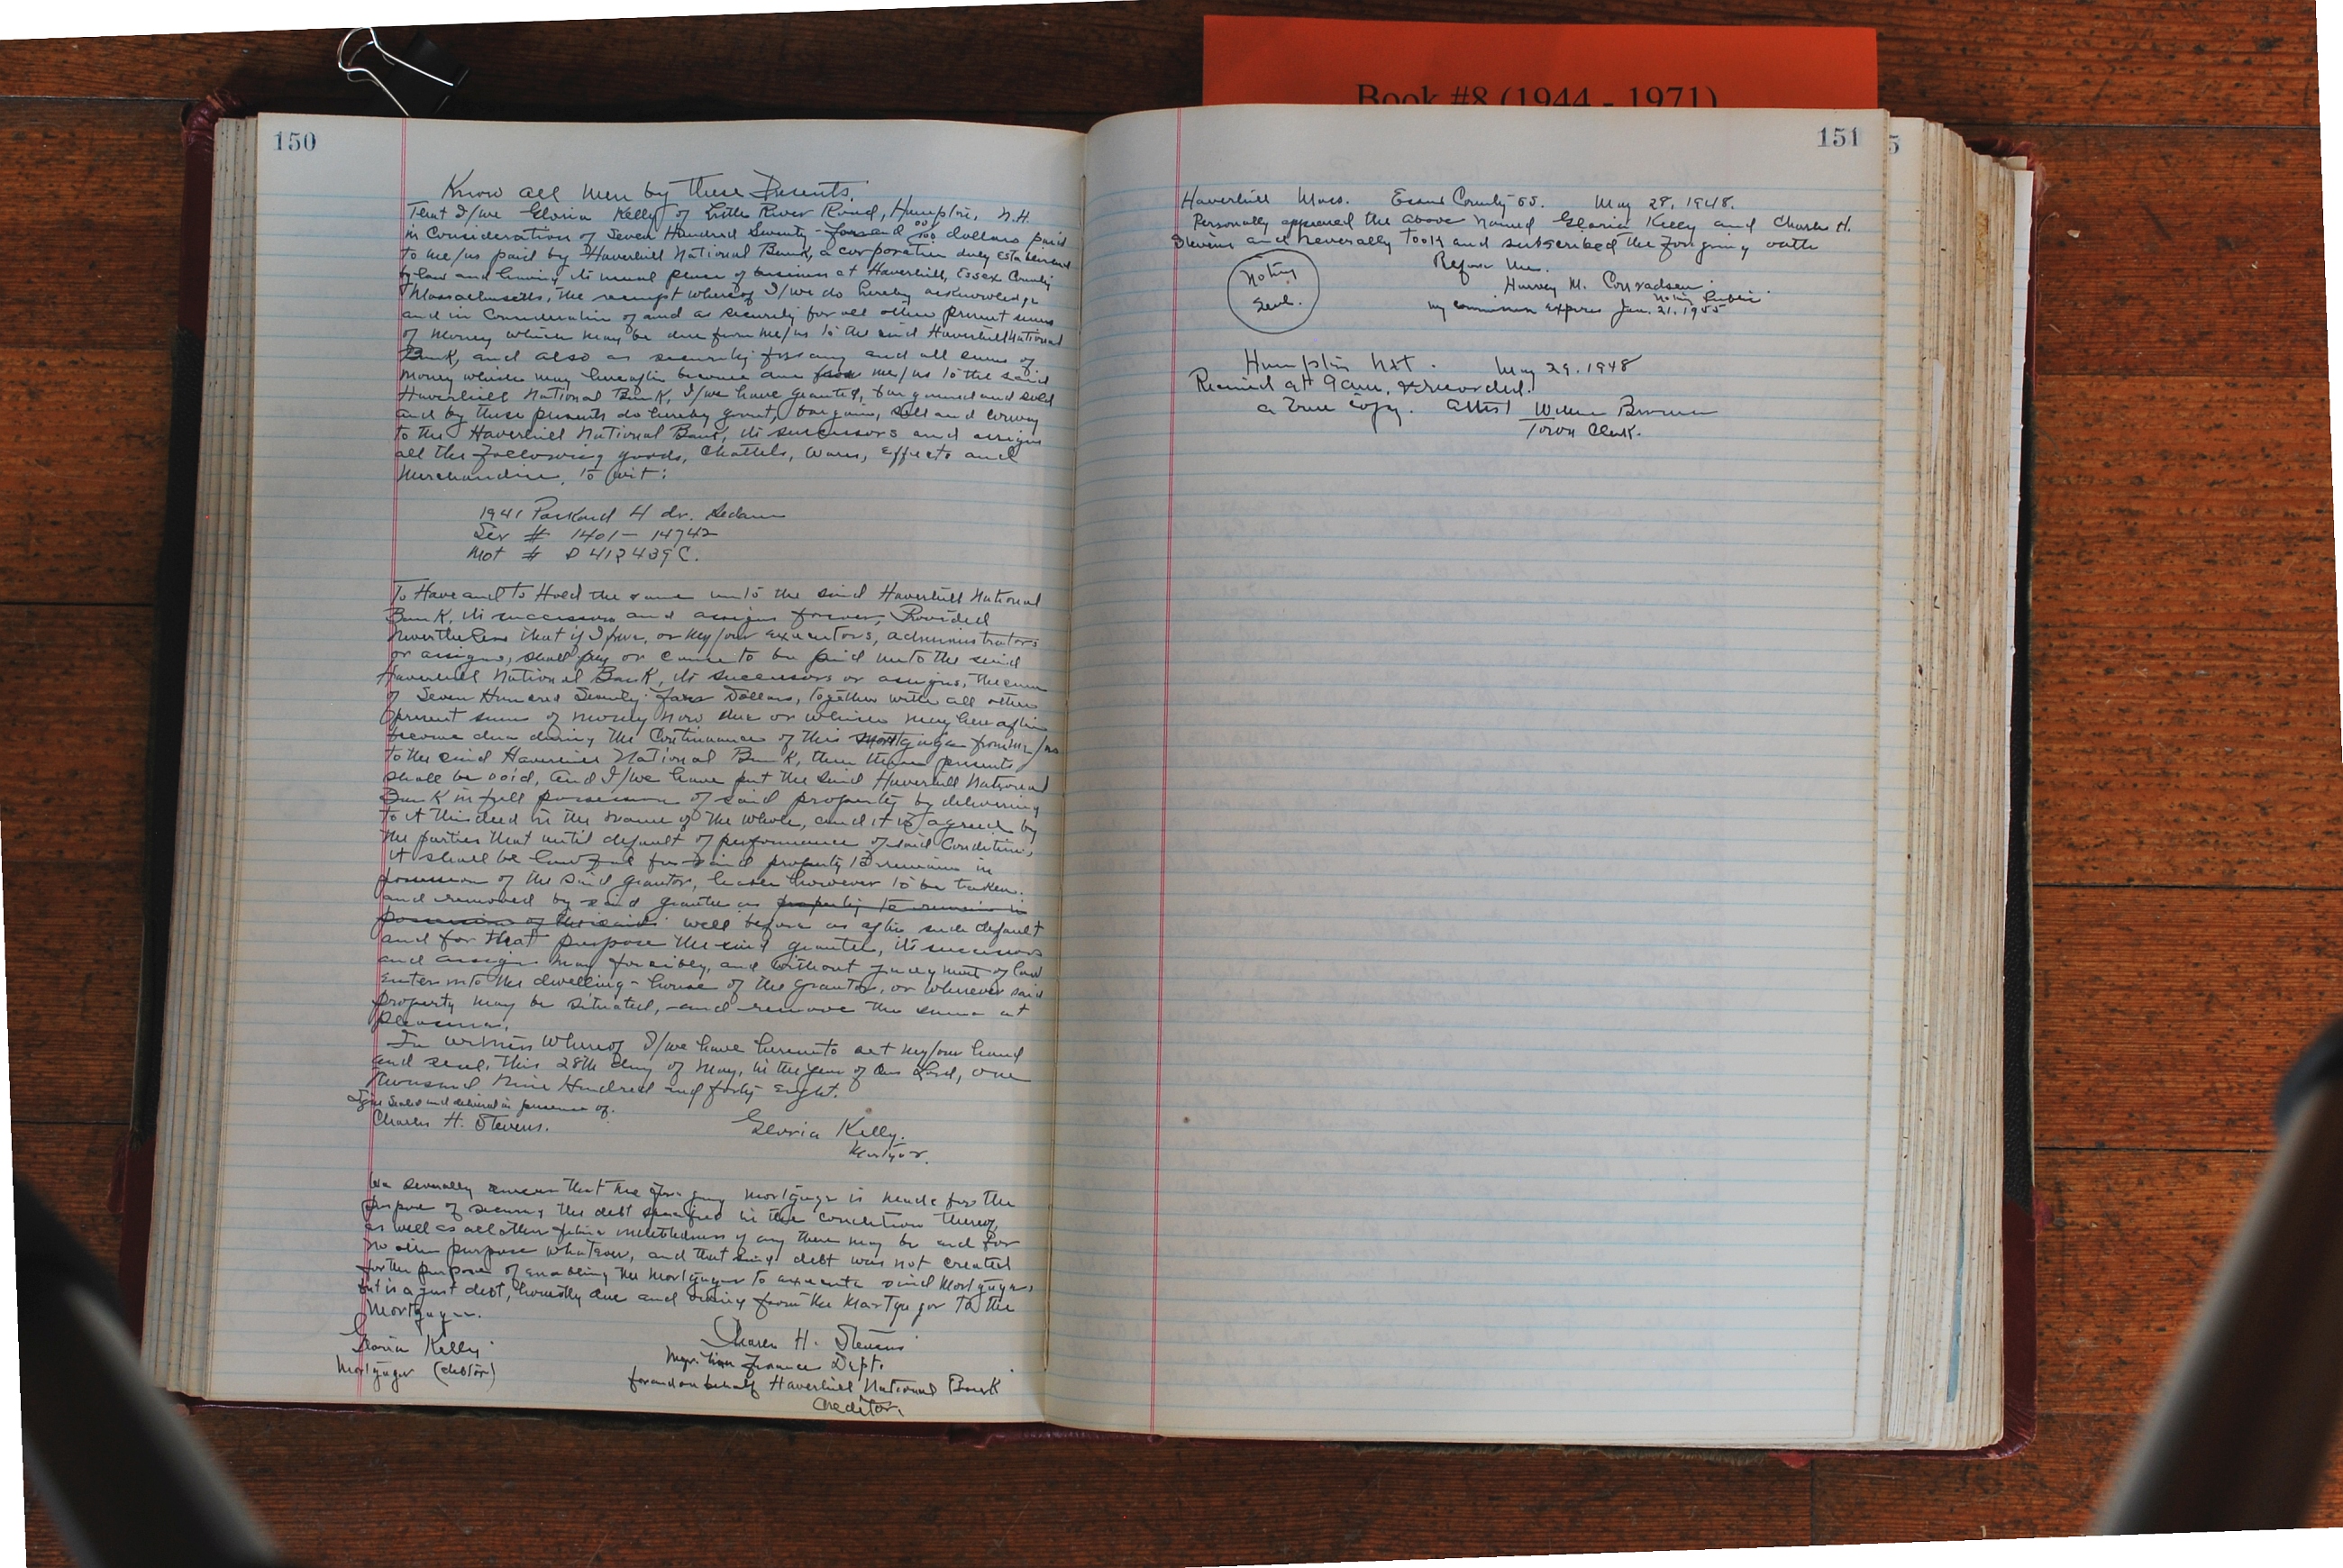 Book #8 (1944 - 1971)
150
Know all men by these Presents.
That I/we Gloria Kelly of Little River Road, Hampton, N.H.
in Consideration of Seven Hundred Seventy-four and 00/100 dollars paid
to me/us paid by Haverhill National Bank, a corporation duly established
by law and having its usual place of business at Haverhill, Essex County
Massachusetts, the receipt whereof I/we do hereby acknowledge
and in Consideration of and as security for all other present sums
of money which may be due from me/us to the said Haverhill National
Bank, and also as security for any and all sums of
money which may hereafter become due from me/us to the said
Haverhill National Bank, I/we have granted, bargained and sold
and by these presents do hereby grant, bargain, sell and convey
to the Haverhill National Bank, its successors and assigns
all the following goods, Chattels, wares, effects and
Merchandise, to wit:
1941 Packard 4 dr. Sedan
Ser # 1401-14742
Mot # D 412439C.
To Have and to Hold the same unto the said Haverhill National
Bank, its successors and assigns forever, Provided
nevertheless that if I/we, or my/our executors, administrators
or assigns, shall pay or cause to be paid unto the said
Haverhill National Bank, its successors or assigns, the sum
of Seven Hundred Seventy-four Dollars, together with all other
present sums of money now due or which may hereafter
become due during the Continuance of this mortgage from me/us
to the said Haverhill National Bank, then these presents
shall be void, and I/we have put the said Haverhill National
Bank in full possession of said property by delivering
to it this deed in the name of the whole, and it is agreed by
the parties that until default of performance of said Condition,
it shall be lawful for said property to remain in
possession of the said grantor, liable however to be taken
and removed by said grantee as property to remain in
possession of the said well before as after such default
and for that purpose the said grantee, its successors
and assigns may forcibly, and without judgment of law
enter into the dwelling-house of the grantor, or wherever said
property may be situated, and remove the same at
pleasure.
In witness whereof I/we have hereunto set my/our hand
and seal, this 28th day of May, in the year of Our Lord, one
thousand nine Hundred and forty Eight.
Signed Sealed and delivered in presence of.
Charles H. Stevens.
Gloria Kelly.
Mortgagor.
We severally swear that the foregoing mortgage is made for the
purpose of securing the debt specified in the condition thereof
as well as all other future indebtedness if any there may be and for
no other purpose whatever, and that said debt was not created
for the purpose of enabling the Mortgagor to execute said Mortgage,
but is a just debt, honestly due and owing from the Mortgagor to the
Mortgagee.
Gloria Kelly
Mortgagor (debtor)
Charles H. Stevens
Mgr. Time Finance Dept.
for and on behalf Haverhill National Bank
Creditor.
151
Haverhill Mass. Essex County SS. May 28, 1948.
Personally appeared the above named Gloria Kelly and Charles H.
Stevens and severally took and subscribed the foregoing oath
Before me.
Notary
Seal.
Harvey M. Conradsen.
Notary Public
my commission expires Jan. 21, 1955
Hampton NH. May 29, 1948
Received at 9 am. & recorded.
a True Copy. Attest
Town Clerk.